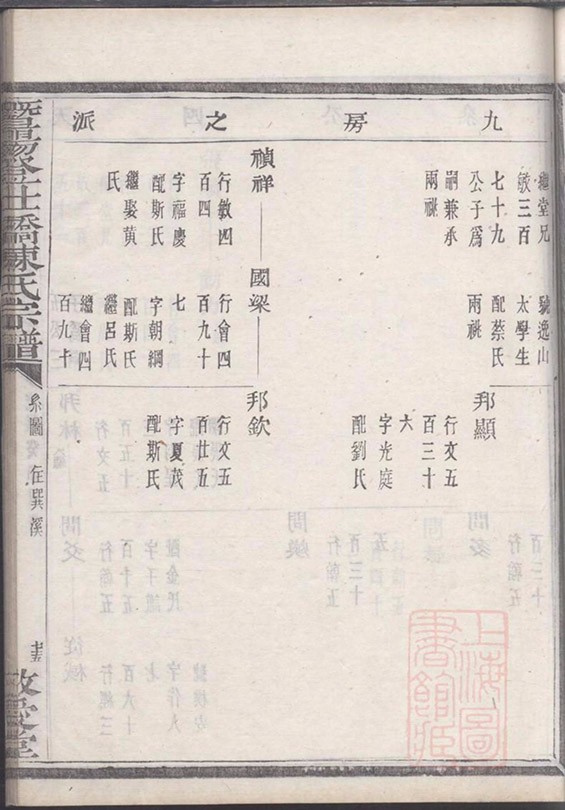 九房之派
繼堂兄
敏三百
七十九
公子爲
嗣兼承
兩祧
號逸山
太學生
配蔡氏
兩祧
邦顯
行文五
百三十
六
字光庭
配劉氏
禎祥
國梁
邦欽
行敏四
百四
字福慶
配斯氏
繼娶黄
氏
行會四
百九十
七
字朝綱
配斯氏
繼呂氏
繼會四
百九十
行文五
百廿五
字夏茂
配斯氏
暨陽
橋陳氏宗譜
系圖
在巽溪
敬愛堂
上海圖
書館藏